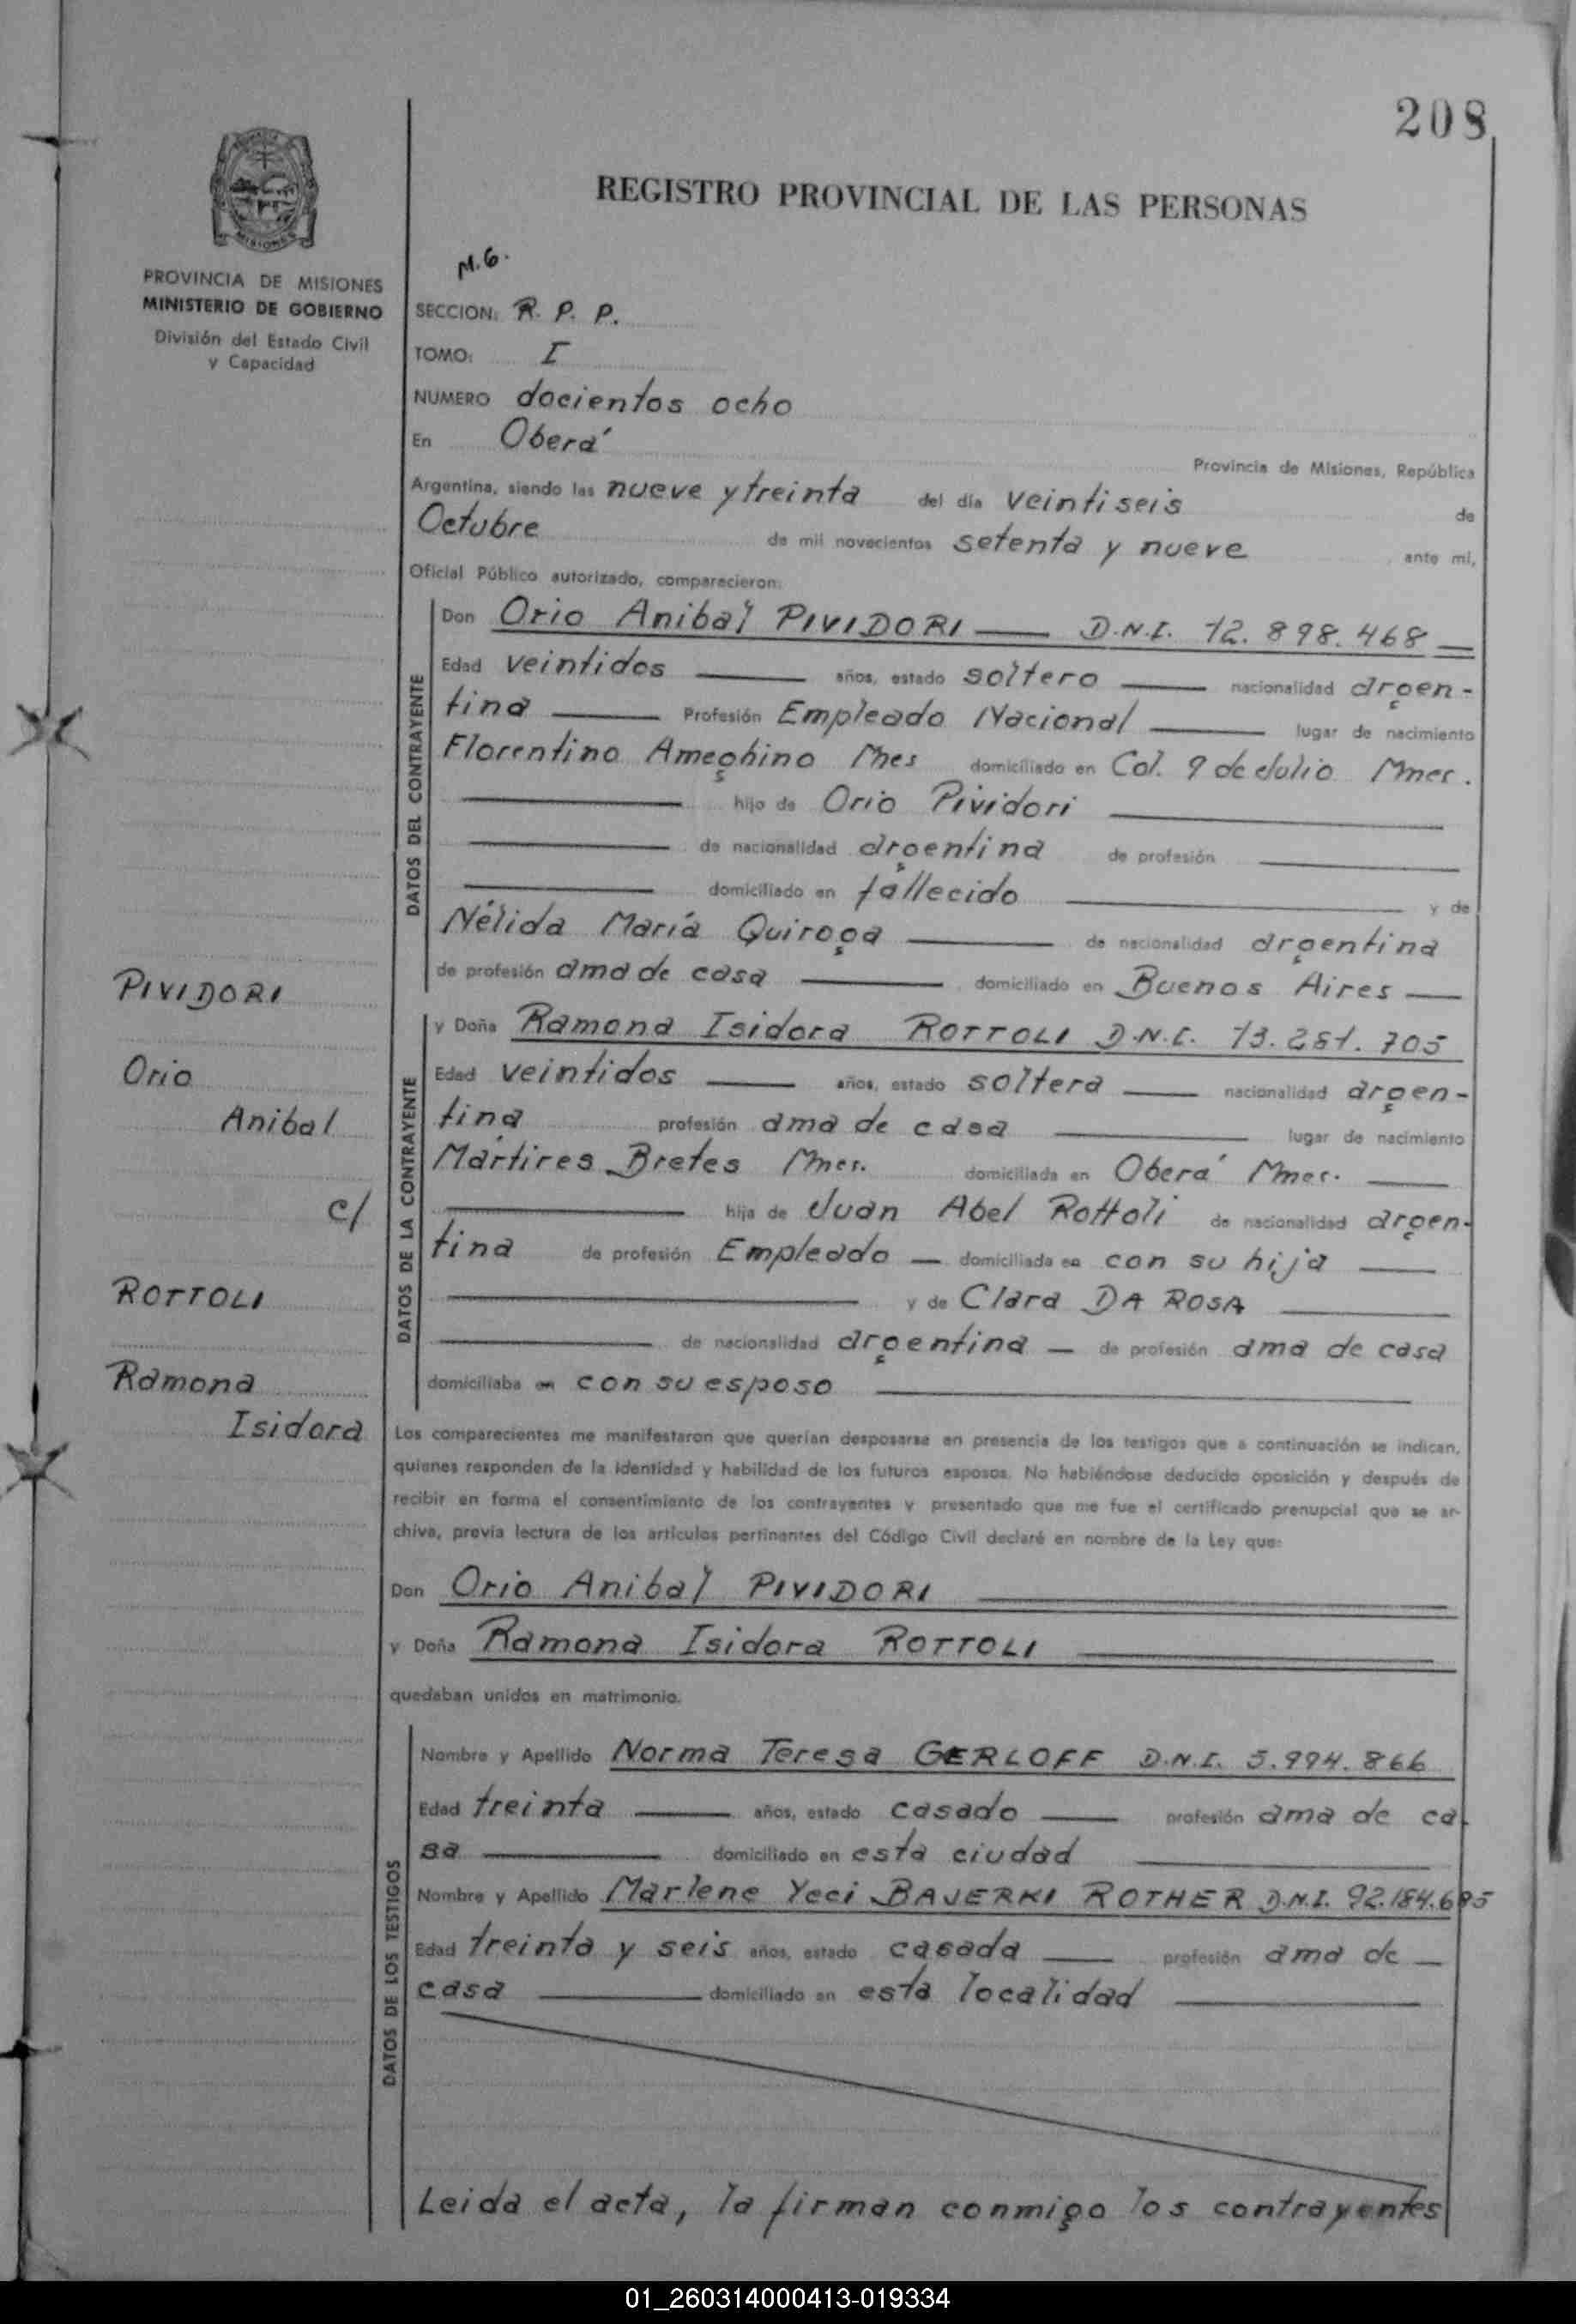 208
REGISTRO PROVINCIAL DE LAS PERSONAS
MISIONES
PROVINCIA DE MISIONES
MINISTERIO DE GOBIERNO
División del Estado Civil
y Capacidad
M.G.
SECCION: R. P. P.
TOMO: I
NUMERO docientos ocho
En Oberá
Provincia de Misiones, República
Argentina, siendo las nueve y treinta del día veintiseis de
Octubre de mil novecientos setenta y nueve ante mí,
Oficial Público autorizado, comparecieron:
DATOS DEL CONTRAYENTE
Don Orio Anibal PIVIDORI — D.N.I. 12.898.468 =
Edad veintidos — años, estado soltero — nacionalidad argen-
tina — Profesión Empleado Nacional — lugar de nacimiento
Florentino Ameghino Mnes domiciliado en Col. 9 de Julio Mnes.
— hijo de Orio Pividori —
— de nacionalidad argentina de profesión —
— domiciliado en fallecido — y de
Nélida María Quiroga — de nacionalidad argentina
de profesión ama de casa — domiciliado en Buenos Aires —
PIVIDORI
Orio
Anibal
c/
ROTTOLI
Ramona
Isidora
DATOS DE LA CONTRAYENTE
y Doña Ramona Isidora ROTTOLI D.N.I. 13.251.705
Edad veintidos — años, estado soltera — nacionalidad argen-
tina profesión ama de casa — lugar de nacimiento
Mártires Bretes Mnes. domiciliada en Oberá Mnes. —
— hija de Juan Abel Rottoli de nacionalidad argen-
tina de profesión Empleado — domiciliada en con su hija —
— y de Clara DA ROSA —
— de nacionalidad argentina — de profesión ama de casa
domiciliaba en con su esposo —
Los comparecientes me manifestaron que querían desposarse en presencia de los testigos que a continuación se indican,
quienes responden de la identidad y habilidad de los futuros esposos. No habiéndose deducido oposición y después de
recibir en forma el consentimiento de los contrayentes y presentado que me fue el certificado prenupcial que se ar-
chiva, previa lectura de los artículos pertinentes del Código Civil declaré en nombre de la Ley que:
Don Orio Anibal PIVIDORI
y Doña Ramona Isidora ROTTOLI
quedaban unidos en matrimonio.
DATOS DE LOS TESTIGOS
Nombre y Apellido Norma Teresa GERLOFF D.N.I. 5.994.866
Edad treinta — años, estado casado — profesión ama de ca-
sa — domiciliado en esta ciudad —
Nombre y Apellido Marlene Yeci BAJERKI ROTHER D.N.I. 92.184.695
Edad treinta y seis años, estado casada — profesión ama de —
casa — domiciliado en esta localidad —
Leida el acta, la firman conmigo los contrayentes
01_260314000413-019334